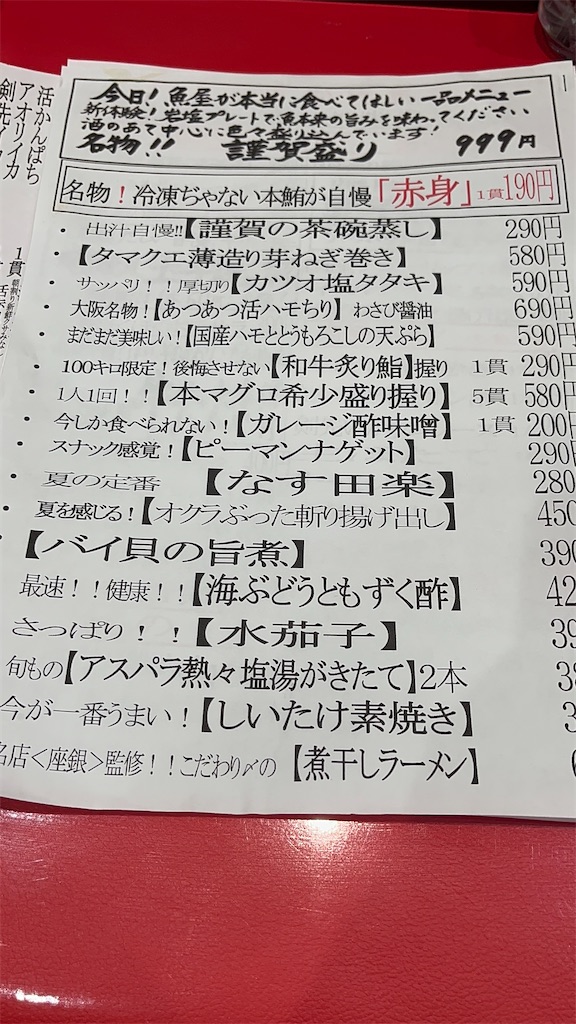 活かんぱち
アオリイカ
剣先イカ
1貫
今日！魚屋が本当に食べてほしい一品メニュー
新体験！岩塩プレートで魚本来の旨みを味わってください
酒のあて中心に色々盛り込んでいます！
名物！！ 謹賀盛り 999円
名物！冷凍ぢゃない本鮪が自慢「赤身」1貫190円
・出汁自慢!!【謹賀の茶碗蒸し】 290円
・【タマクエ薄造り芽ねぎ巻き】 580円
・サッパリ！！厚切り【カツオ塩タタキ】 590円
・大阪名物！【あつあつ活ハモちり】わさび醤油 690円
・まだまだ美味しい！【国産ハモととうもろこしの天ぷら】 590円
・100キロ限定！後悔させない【和牛炙り鮨】握り 1貫 290円
・1人1回！！【本マグロ希少盛り握り】 5貫 580円
・今しか食べられない！【ガレージ酢味噌】 1貫 200円
・スナック感覚！【ピーマンナゲット】 290円
・夏の定番 【なす田楽】 280
・夏を感じる！【オクラぶった斬り揚げ出し】 450
・【バイ貝の旨煮】 390
最速！！健康！！【海ぶどうともずく酢】 42
さっぱり！！【水茄子】 39
旬もの【アスパラ熱々塩湯がきたて】2本 38
今が一番うまい！【しいたけ素焼き】 3
名店＜座銀＞監修！！こだわり〆の【煮干しラーメン】